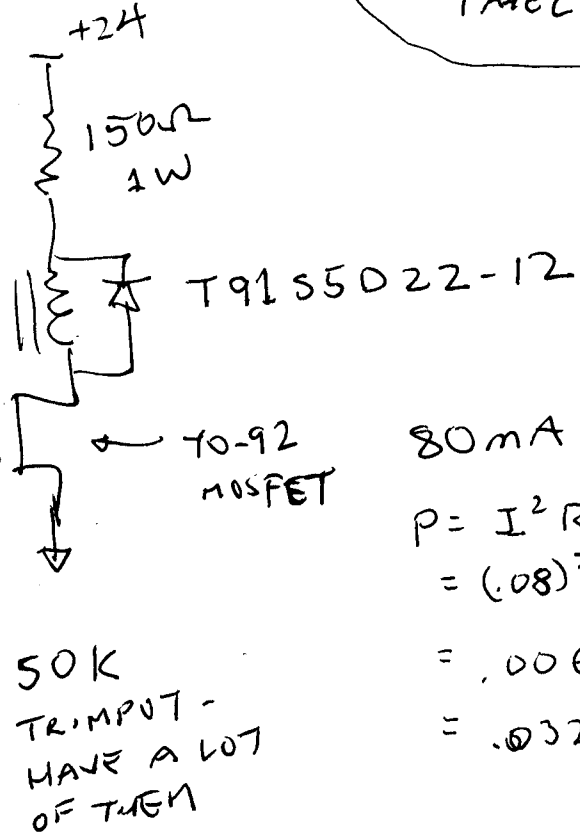 +24
150Ω
1W
T91S5D22-12
TO-92
MOSFET
80mA
P= I²R
= (.08)²
= .006
= .032
50K
TRIMPOT -
HAVE A LOT
OF THEM